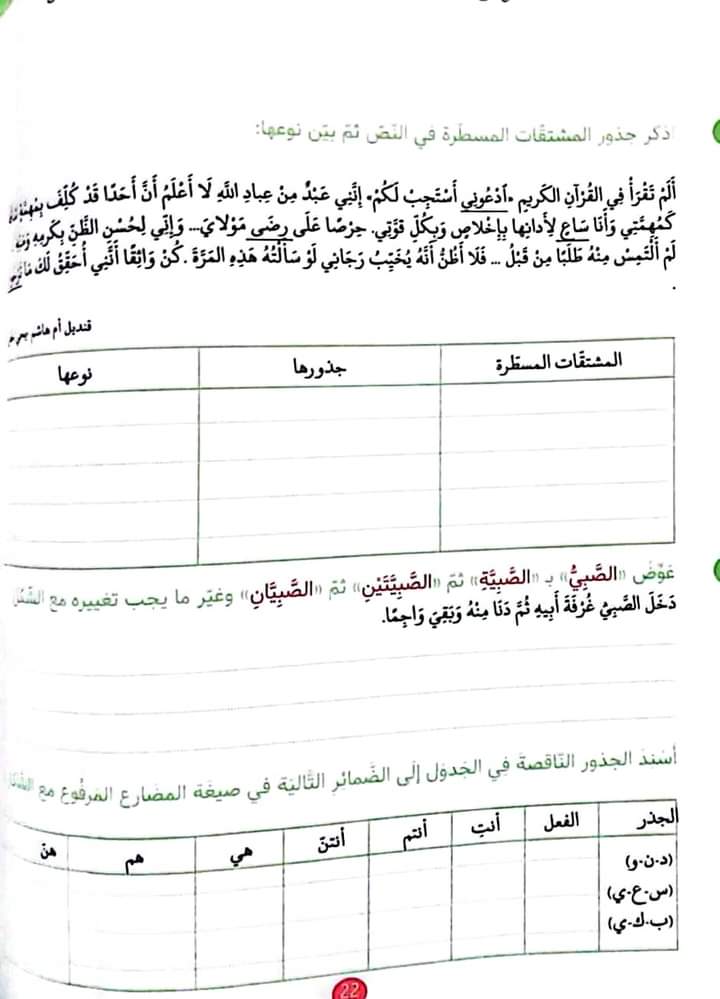 اذكر جذور المشتقّات المسطّرة في النّصّ ثمّ بيّن نوعها:
أَلَمْ تَقْرَأْ فِي القُرْآنِ الكَرِيمِ «اُدْعُونِي أَسْتَجِبْ لَكُمْ» إِنَّنِي عَبْدٌ مِنْ عِبادِ اللَّهِ لَا أَعْلَمُ أَنَّ أَحَدًا قَدْ كُلِّفَ
كَمُهِمَّتِي وَأَنَا سَاعٍ لِأَدائِها بِإِخْلاصٍ وَبِكُلِّ قُوَّتِي. حِرْصًا عَلَى رِضَى مَوْلايَ... وَإِنِّي لِحُسْنِ الظَّنِّ بِكَرمِهِ
لَمْ أَلْتَمِسْ مِنْهُ طَلَبًا مِنْ قَبْلُ ... فَلَا أَظُنُّ أَنَّهُ يُخَيِّبُ رَجَائِي لَوْ سَأَلْتُهُ هَذِهِ المَرَّةَ. كُنْ وَاثِقًا أَنَّنِي أُحَقِّقُ لَكَ مَا
.
قنديل أم هاشم
المشتقّات المسطّرة جذورها نوعها
عَوِّضْ «الصَّبِيُّ» بـ «الصَّبِيَّةِ» ثمّ «الصَّبِيَّتَيْنِ» ثمّ «الصَّبِيَّانِ» وغيّر ما يجب تغييره مع الشّكل
دَخَلَ الصَّبِيُّ غُرْفَةَ أَبِيهِ ثُمَّ دَنَا مِنْهُ وَبَقِيَ وَاجِمًا.
أسْند الجذور النّاقصةَ فِي الجَدول إلَى الضّمائرِ التَّاليَة في صيغَة المضارع المَرفُوع مع
الجذر الفعل أنتِ أنتم أنتنّ هي هم هنّ
(د-ن-و)
(س-ع-ي)
(ب-ك-ي)
22